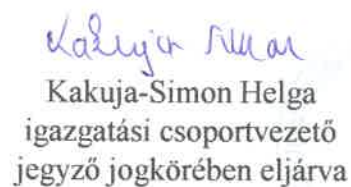 Kakuja-Simon Helga
igazgatási csoportvezető
jegyző jogkörében eljárva